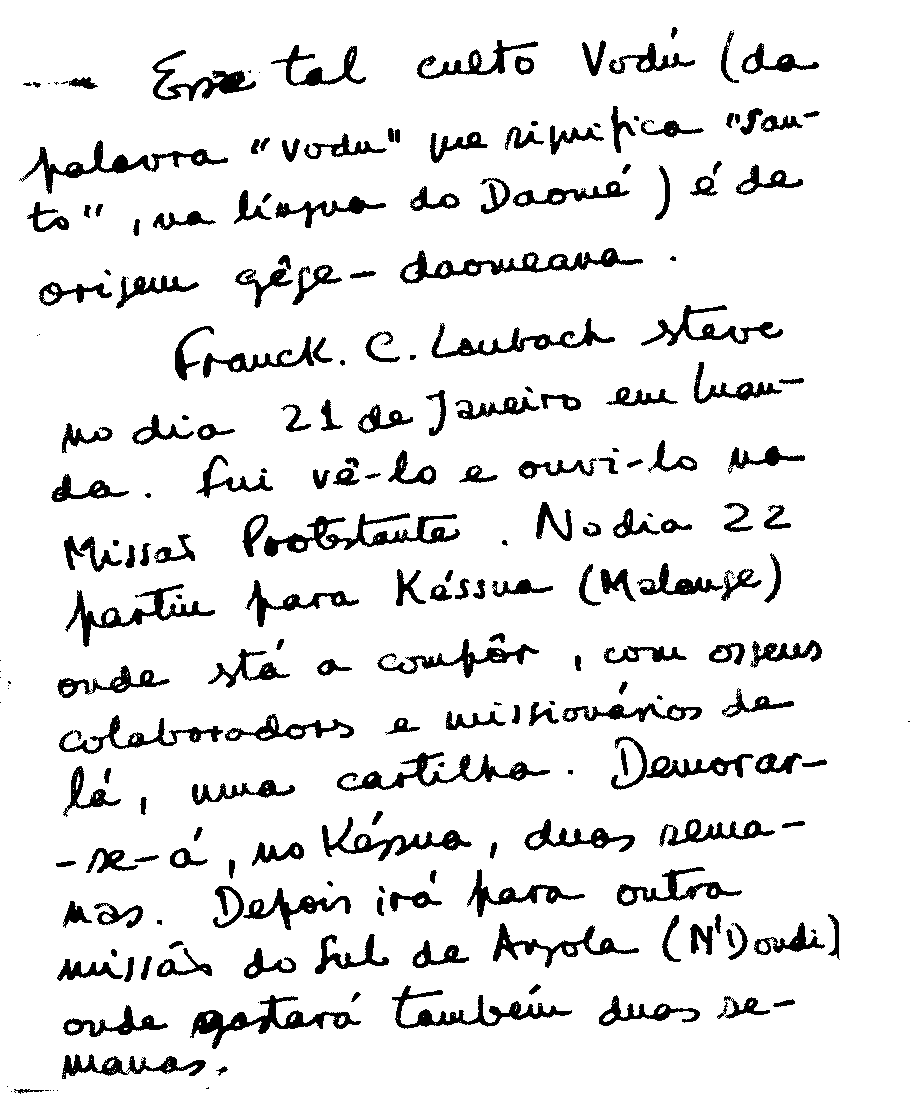 — Esse tal culto Vodú (da
palavra "vodu" que significa "san-
to", na língua do Daomé) é de
origem gêge-daomeana.
Franck. C. Laubach steve
no dia 21 de Janeiro em Luan-
da. Fui vê-lo e ouvi-lo na
Missão Protestante. No dia 22
partiu para Késsua (Malange)
onde stá a compôr, com os seus
colaboradores e missionários de
lá, uma cartilha. Demorar-
-se-á, no Késsua, duas sema-
nas. Depois irá para outra
missão do Sul de Angola (N'Dondi)
onde gastará também duas se-
manas.